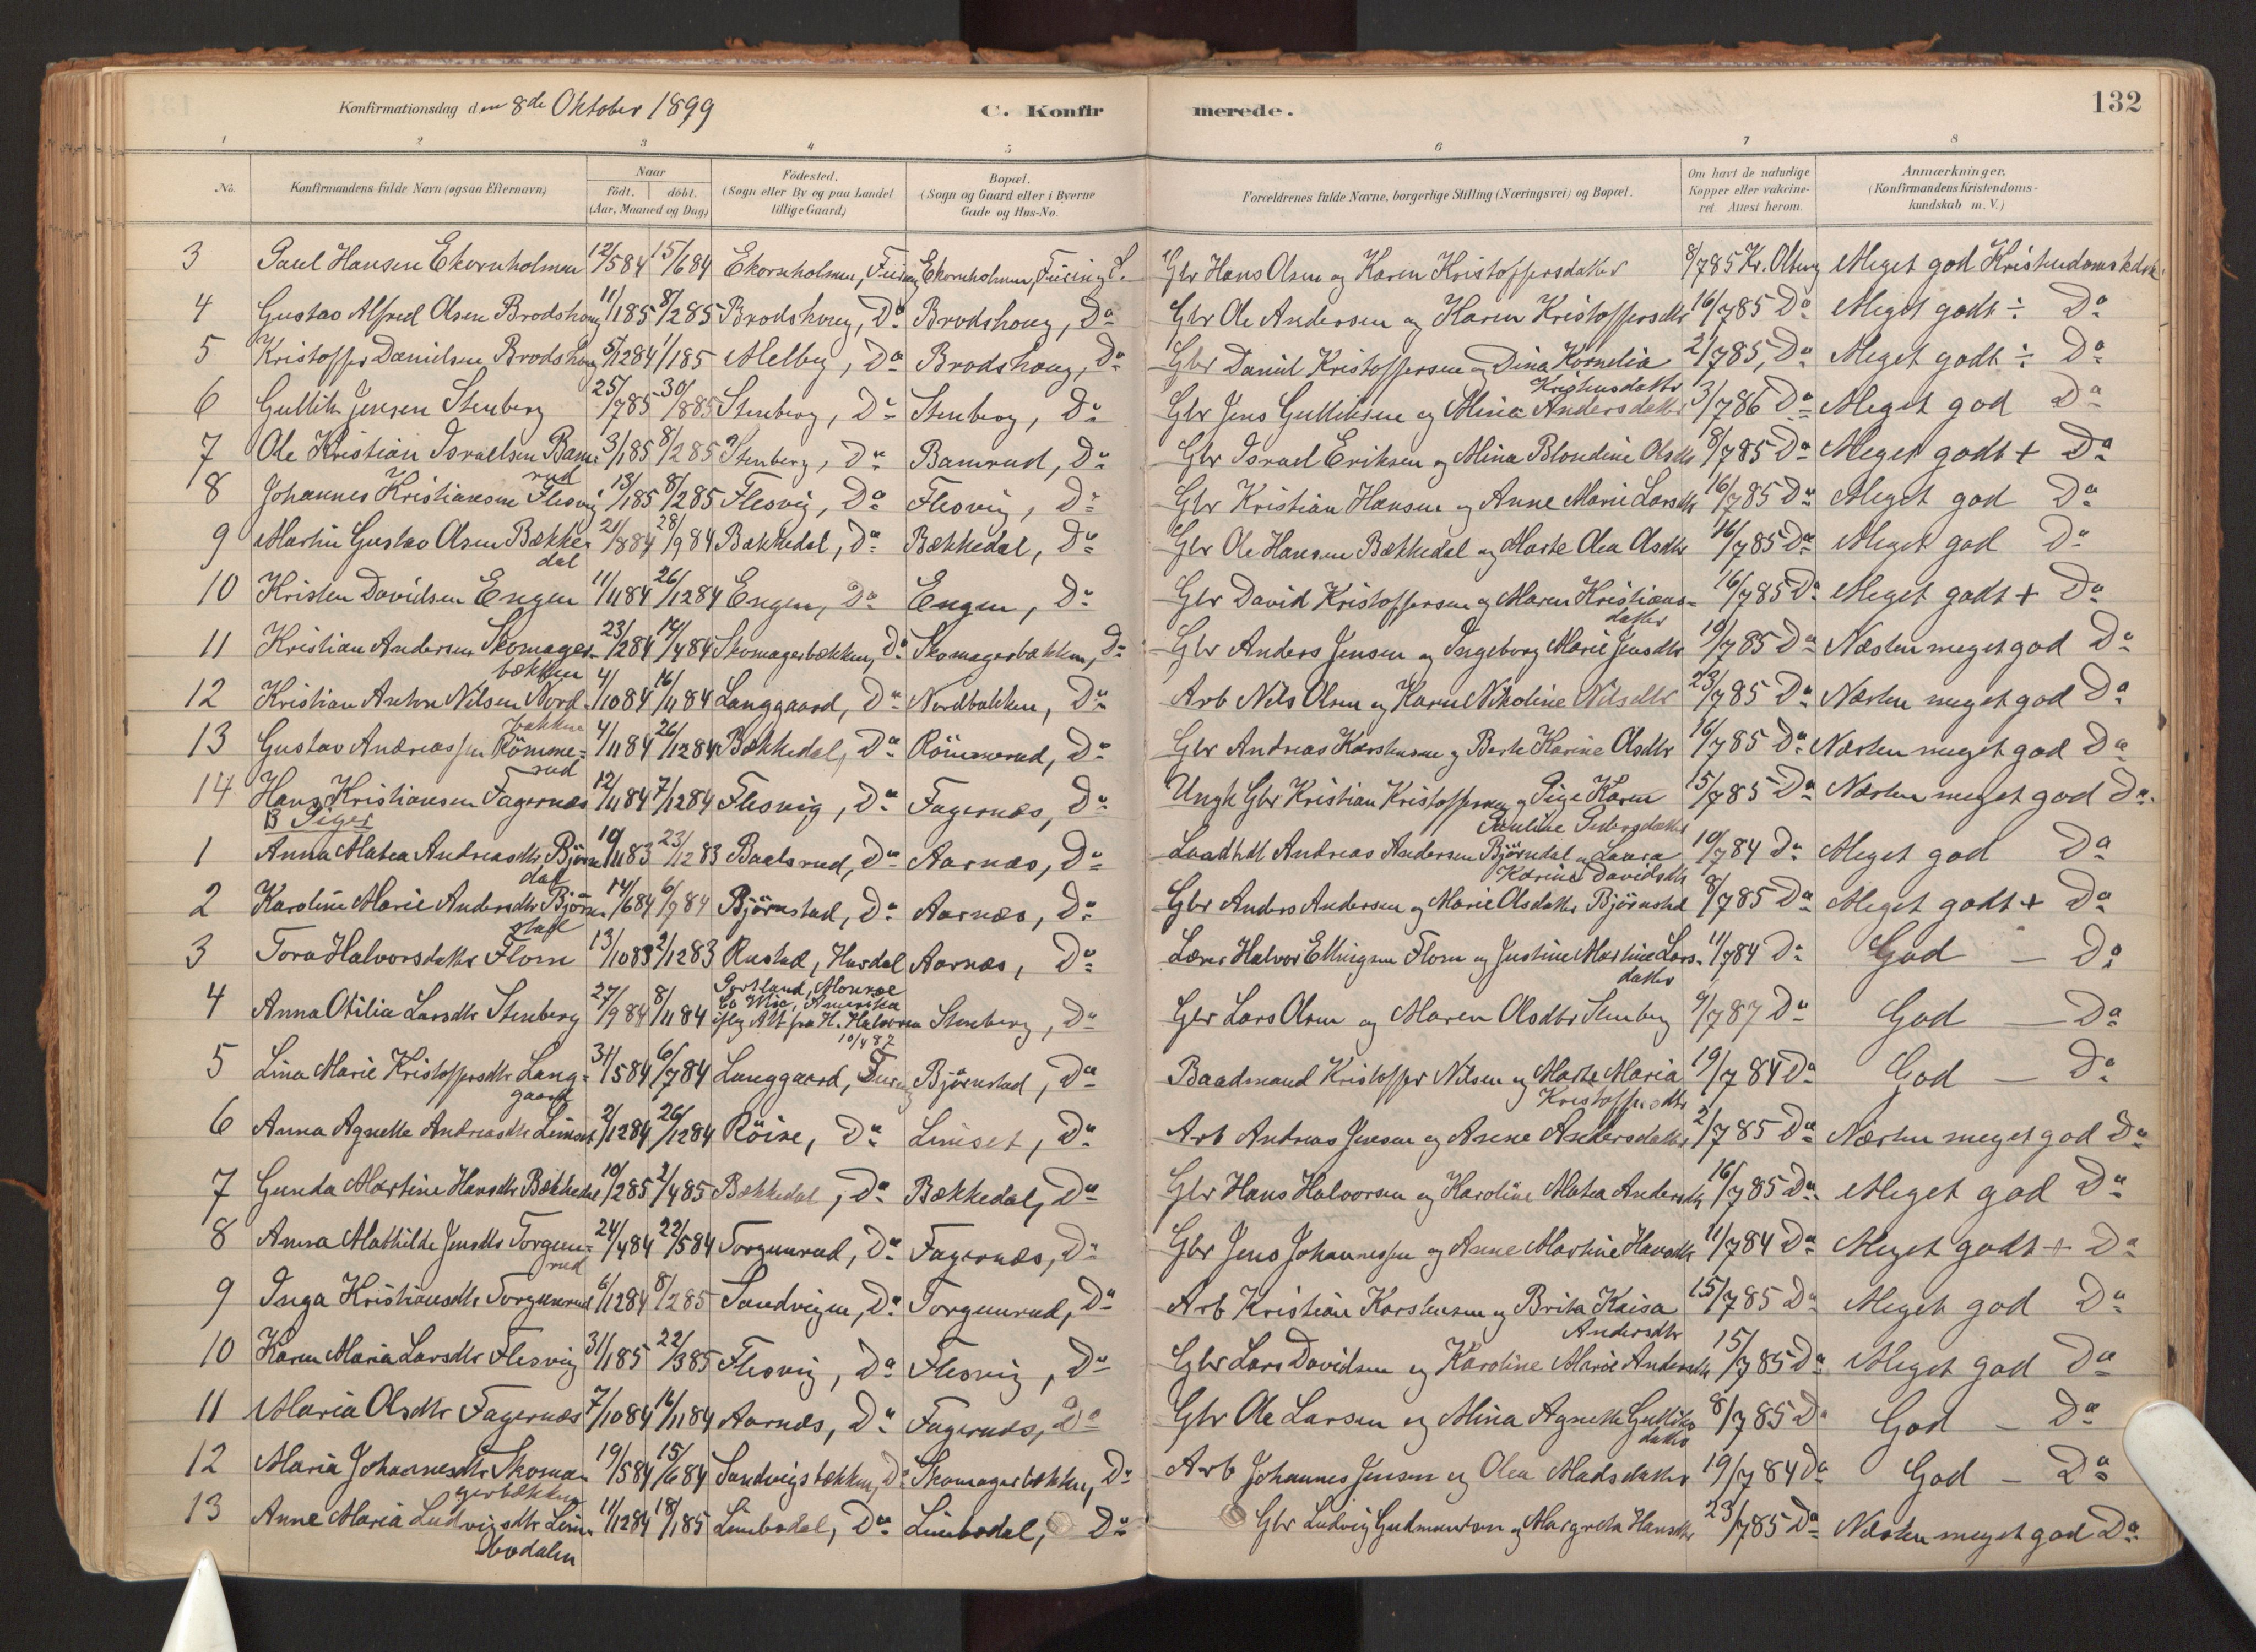 Konfirmationsdag den 8de Oktober 1899
C. Konfir
merede.
132
1 2 3 4 5 6 7 8
No.
Konfirmandens fulde Navn (ogsaa Efternavn)
Naar
födt. döbt.
(Aar, Maaned og Dag)
Födested.
(Sogn eller By og paa Landet
tillige Gaard)
Bopæl.
(Sogn og Gaard eller i Byerne
Gade og Hus-No.
Forældrenes fulde Navne, borgerlige Stilling (Næringsvei) og Bopæl.
Om havt de naturlige
Kopper eller vakcine-
ret. Attest herom.
Anmærkninger.
(Konfirmandens Kristendoms-
kundskab m. V.)
3 Paul Hansen Ekornholmen 12/584 15/684 Ekornholmen, Feiring Ekornholmen, Feiring Gbr Hans Olsen og Karen Kristoffersdatter 8/785 Kr. Olberg Meget god Kristendomskdsk.
4 Gustav Alfred Olsen Brodshoug 11/185 8/285 Brodshoug, Do Brodshoug, Do Gbr Ole Andersen og Karen Kristoffersdtr 16/785 Do Meget godt ÷ Do
5 Kristoffer Danielsen Brodshoug 5/1284 1/185 Melby, Do Brodshoug, Do Gbr Daniel Kristoffersen og Dina Kornelia 2/785, Do Meget godt ÷ Do
Kristensdatter
6 Gullik Jensen Stenberg 25/785 30/885 Stenberg, Do Stenberg, Do Gbr Jens Gulliksen og Mina Andersdatter 3/786 Do Meget god Do
7 Ole Kristian Israelsen Bam- 3/185 8/285 Stenberg, Do Bamrud, Do Gbr Israel Eriksen og Mina Blondine Olsdtr 8/785 Do Meget godt + Do
rud
8 Johannes Kristiansen Flesvig 13/185 8/285 Flesvig, Do Flesvig, Do Gbr Kristian Hansen og Anne Marie Larsdtr 16/785 Do Meget god Do
9 Martin Gustav Olsen Bække- 21/884 28/984 Bækkedal, Do Bækkedal, Do Gbr Ole Hansen Bækkedal og Marte Olea Olsdtr 16/785 Do Meget god Do
dal
10 Kristen Davidsen Engen 11/1184 26/1284 Engen, Do Engen, Do Gbr David Kristoffersen og Maren Kristians- 16/785 Do Meget godt + Do
datter
11 Kristian Andersen Skomager- 23/284 14/484 Skomagerbækken, Do Skomagerbækken, Do Gbr Anders Jensen og Ingeborg Marie Jensdtr 19/785 Do Næsten meget god Do
bækken
12 Kristian Anton Nilsen Nord- 4/1084 16/1184 Langgaard, Do Nordbakken, Do Arb Nils Olsen og Karen Nikoline Nilsdtr 23/785 Do Næsten meget god Do
bakken
13 Gustav Andreassen Römme- 4/1184 26/1284 Bækkedal, Do Römmerud, Do Gbr Andreas Karstensen og Berte Karine Olsdtr 16/785 Do Næsten meget god Do
rud
14 Hans Kristiansen Fagernæs 12/1184 7/1284 Flesvig, Do Fagernæs, Do Ungk Gbr Kristian Kristoffersen og Pige Karen 15/785 Do Næsten meget god Do
B Piger
Pauline Pedersdatter
1 Anna Matea Andreasdtr Björn- 19/1183 23/1283 Baalsrud, Do Aarnæs, Do Andreas Andersen Björndal og Laura 19/784 Do Meget god Do
dal
Karine Davidsdtr
2 Karoline Marie Andersdtr Björn- 14/684 6/784 Björnstad, Do Aarnæs, Do Gbr Anders Andersen og Marie Olsdatter Björnstad 8/785 Do Meget godt + Do
stad
3 Tora Halvorsdatter Flom 13/1083 2/1283 Rustad, Hurdal Aarnæs, Do Lærer Halvor Ellingsen Flom og Justine Martine Lars- 11/784 Do God — Do
datter
Portland, Monroe
Co Wic, Amerika
4 Anna Otilia Larsdtr Stenberg 27/984 8/1184 iflg Att fra H. Halvorsen Stenberg, Do Gbr Lars Olsen og Maren Olsdtr Stenberg 9/787 Do God — Do
10/487
5 Lina Marie Kristoffersdtr Lang- 31/584 6/784 Langgaard, Feiring Björnstad, Do Baadmand Kristoffer Nilsen og Marte Maria 19/784 Do God — Do
gaard
Kristoffersdtr
6 Anna Agnette Andreasdtr Linset 2/1284 26/1284 Röise, Do Linset, Do Arb Andreas Jensen og Anne Andersdatter 2/785 Do Næsten meget god Do
7 Gunda Martine Hansdtr Bækkedal 10/285 2/485 Bækkedal, Do Bækkedal, Do Gbr Hans Halvorsen og Karoline Matea Andersdtr 16/785 Do Meget god Do
8 Anna Mathilde Jensdtr Torgun- 24/484 22/584 Torgunrud, Do Fagernæs, Do Gbr Jens Johannessen og Anne Martine Hansdtr 11/784 Do Meget godt + Do
rud
9 Inga Kristiansdtr Torgunrud 6/1284 8/285 Sandvigen, Do Torgunrud, Do Arb Kristian Karstensen og Brita Kaisa 15/785 Do Meget god Do
Andersdtr
10 Karen Maria Larsdtr Flesvig 31/185 22/385 Flesvig, Do Flesvig, Do Gbr Lars Davidsen og Karoline Marie Andersdtr 15/785 Do Meget god Do
11 Maria Olsdtr Fagernæs 7/1084 16/1184 Aarnæs, Do Fagernæs, Do Gbr Ole Larsen og Mina Agnette Gulliks 8/785 Do God — Do
datter
12 Maria Johannesdtr Skoma- 19/584 15/684 Sandvigsbækken, Do Skomagerbækken, Do Arb Johannes Jensen og Olea Madsdatter 19/784 Do God — Do
gerbækken
13 Anne Maria Ludvigsdtr Lim- 11/1284 18/185 Limbodal, Do Limbodal, Do Gbr Ludvig Gudmundsen og Margrete Hansdtr 23/785 Do Næsten meget god Do
bodalen